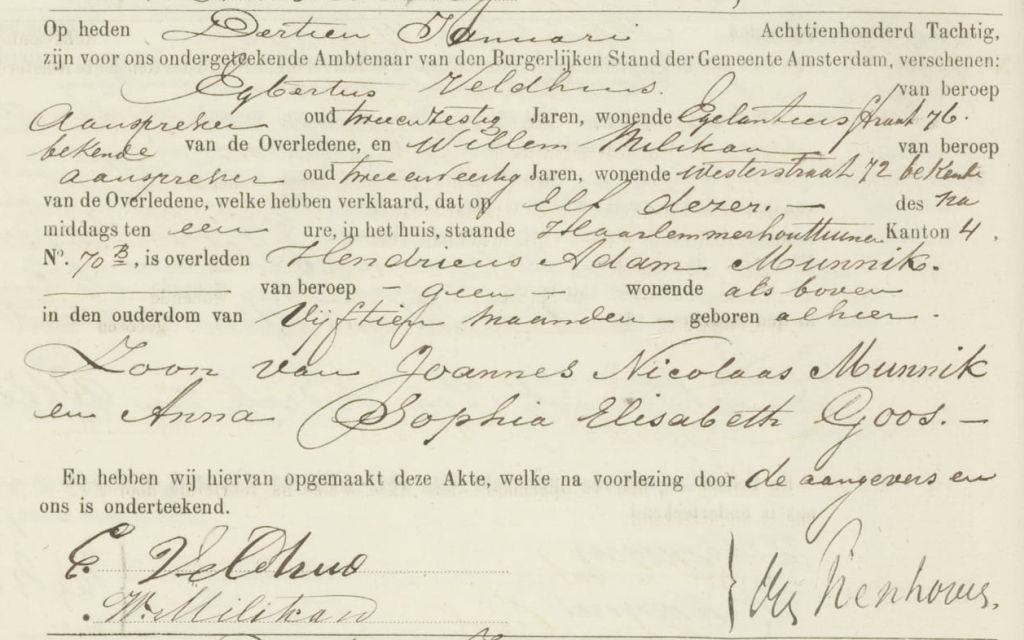 Op heden Dertien Januari Achttienhonderd Tachtig,
zijn voor ons ondergeteekende Ambtenaar van den Burgerlijken Stand der Gemeente Amsterdam, verschenen:
Egbertus Veldhuis. van beroep
Aanspreker oud tweeenzestig Jaren, wonende Egelantiersstraat 76.
bekende van de Overledene, en Willem Milikan van beroep
aanspreker oud tweeenveertig Jaren, wonende Westerstraat 72 bekende
van de Overledene, welke hebben verklaard, dat op Elf dezer. — des na
middags ten een ure, in het huis, staande Haarlemmerhouttuinen Kanton 4,
No. 70 B, is overleden Hendricus Adam Munnik.
van beroep – geen – wonende als boven
in den ouderdom van Vijftien maanden geboren alhier.
Zoon van Joannes Nicolaas Munnik
en Anna Sophia Elisabeth Goos. —
En hebben wij hiervan opgemaakt deze Akte, welke na voorlezing door de aangevers en
ons is onderteekend.
E. Veldhuis
W. Milikan